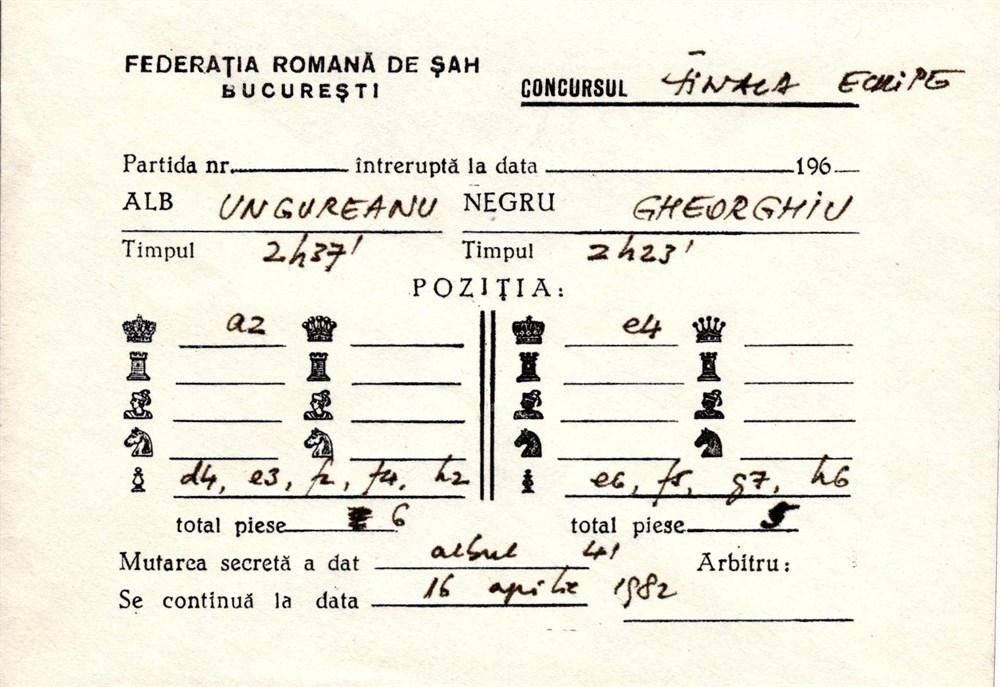 FEDERAȚIA ROMANĂ DE ȘAH
BUCUREȘTI
CONCURSUL FINALA ECHIPE
Partida nr. întreruptă la data 196
ALB UNGUREANU NEGRU GHEORGHIU
Timpul 2h37' Timpul 2h23'
POZIȚIA:
a2 e4
d4, e3, f2, f4, h2 e6, f5, g7, h6
total piese 6 total piese 5
Mutarea secretă a dat albul 41 Arbitru:
Se continuă la data 16 aprilie 1982